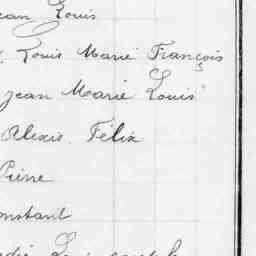 ean Louis
Louis Marie François
Jean Marie Louis
Alexis Félix
Pierre
onstant